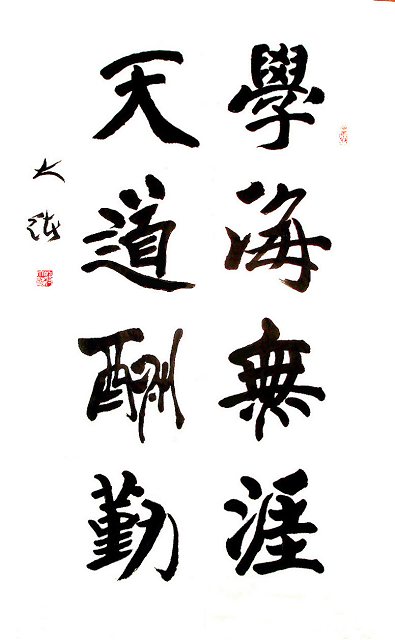 學海無涯
天道酬勤